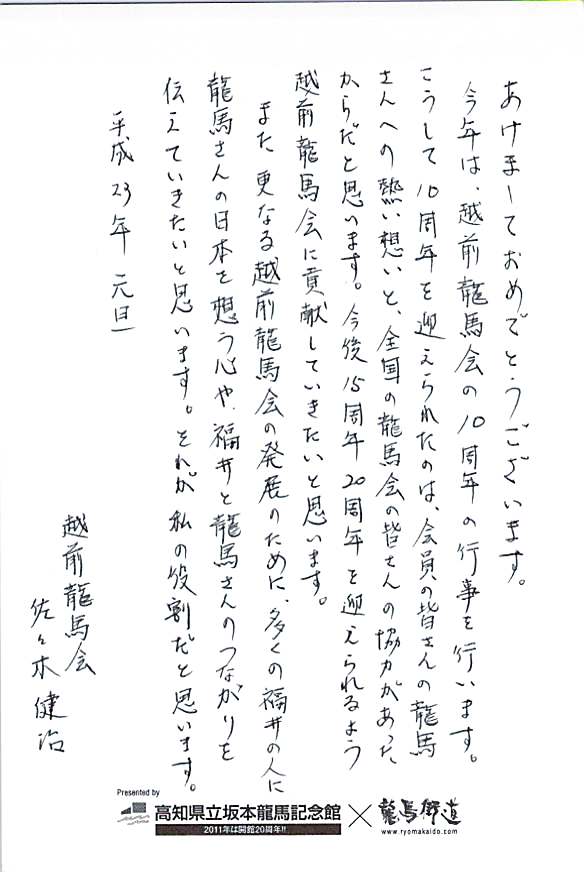 あけましておめでとうございます。
今年は、越前龍馬会の10周年の行事を行います。
こうして10周年を迎えられたのは、会員の皆さんの龍馬
さんへの熱い想いと、全国の龍馬会の皆さんの協力があった
からだと思います。今後15周年20周年を迎えられるよう
越前龍馬会に貢献していきたいと思います。
また更なる越前龍馬会の発展のために、多くの福井の人に
龍馬さんの日本を想う心や、福井と龍馬さんのつながりを
伝えていきたいと思います。それが私の役割だと思います。
平成23年元旦
越前龍馬会
佐々木健治
Presented by
高知県立坂本龍馬記念館 × 龍馬街道
2011年は開館20周年!!
www.ryomakaido.com